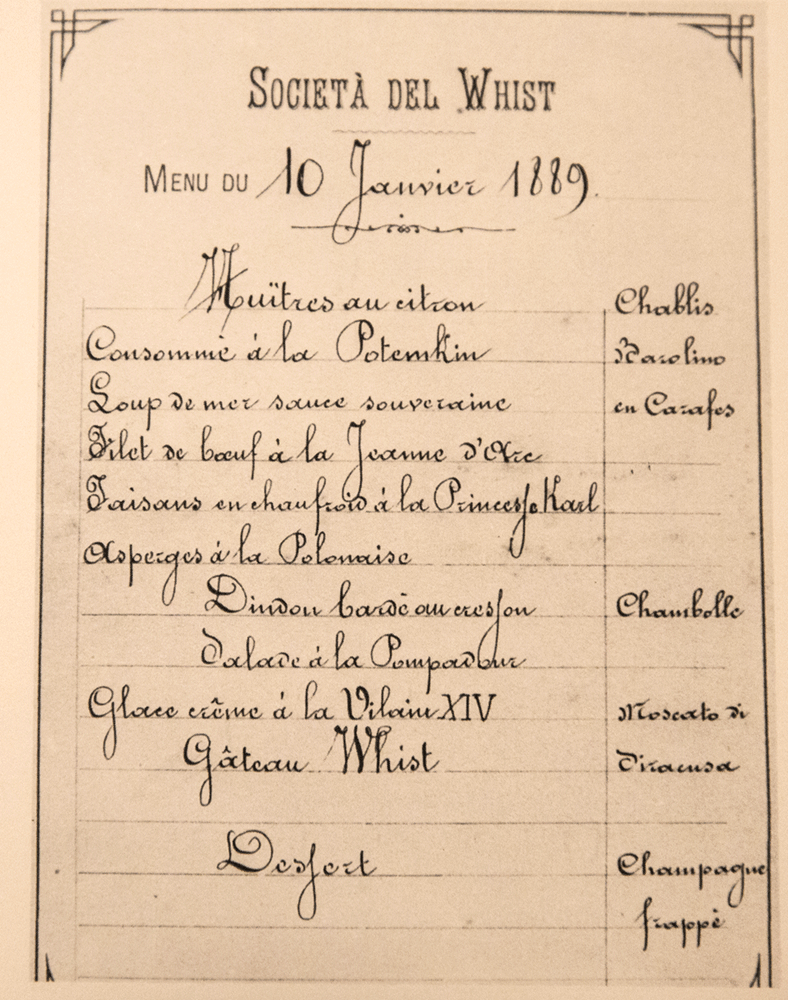 SOCIETÀ DEL WHIST
MENU DU 10 Janvier 1889.
Huîtres au citron Chablis
Consommé à la Potemkin Barolino
Loup de mer sauce souveraine en Carafes
Filet de bœuf à la Jeanne d'Arc
Faisans en chaufroid à la Princesse Karl
Asperges à la Polonaise
Dindon bardé au cresson Chambolle
Salade à la Pompadour
Glace crême à la Vilain XIV Moscato di
Gâteau Whist Siracusa
Dessert Champagne
frappé